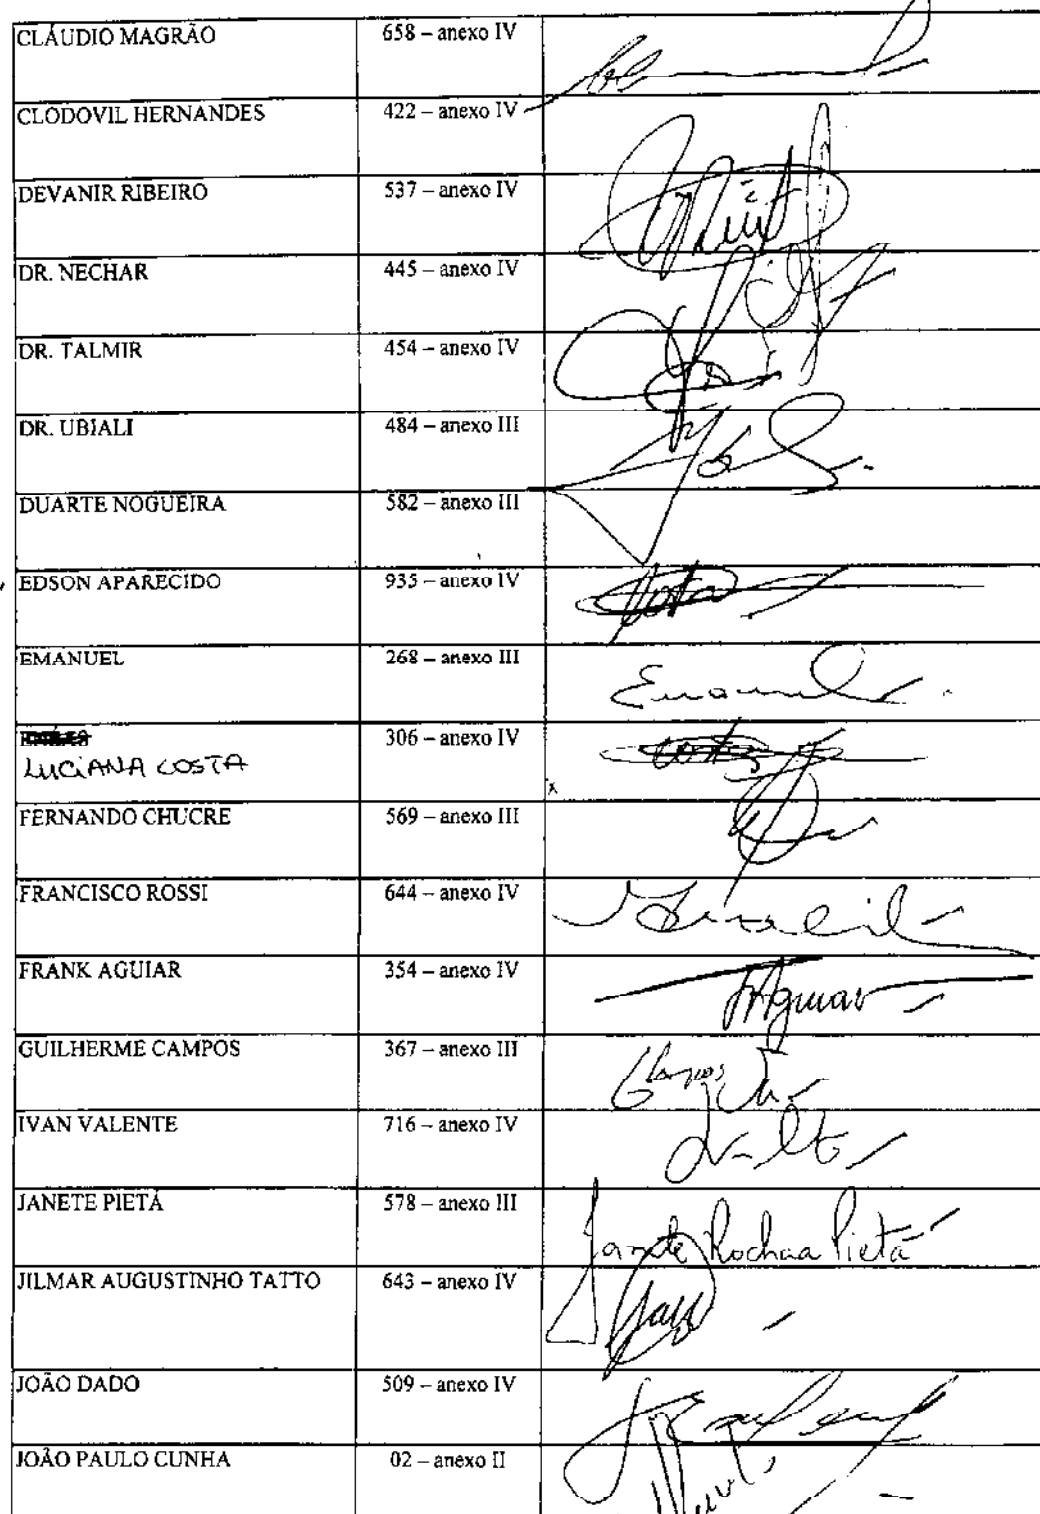 CLÁUDIO MAGRÃO 658 – anexo IV
CLODOVIL HERNANDES 422 – anexo IV
DEVANIR RIBEIRO 537 – anexo IV
DR. NECHAR 445 – anexo IV
DR. TALMIR 454 – anexo IV
DR. UBIALI 484 – anexo III
DUARTE NOGUEIRA 582 – anexo III
EDSON APARECIDO 933 – anexo IV
EMANUEL 268 – anexo III
Emanuel
306 – anexo IV
LUCIANA COSTA
Costa
FERNANDO CHUCRE 569 – anexo III
FRANCISCO ROSSI 644 – anexo IV
FRANK AGUIAR 354 – anexo IV
FAguiar
GUILHERME CAMPOS 367 – anexo III
Campos
IVAN VALENTE 716 – anexo IV
JANETE PIETÁ 578 – anexo III
Janete Rocha Pietá
JILMAR AUGUSTINHO TATTO 643 – anexo IV
JOÃO DADO 509 – anexo IV
JOÃO PAULO CUNHA 02 – anexo II